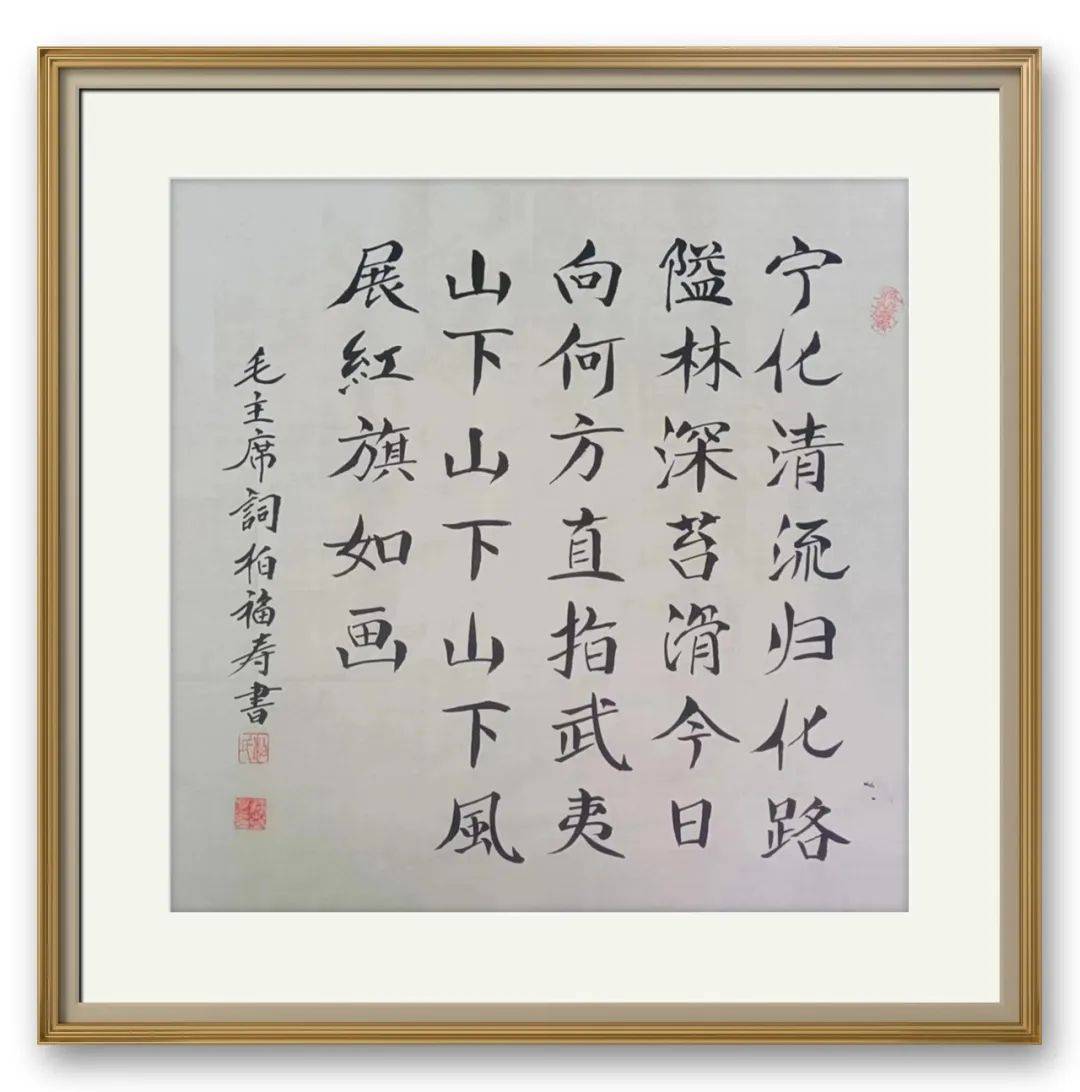 宁化清流归化路
隘林深苔滑今日
向何方直指武夷
山下山下山下風
展紅旗如画
毛主席詞柏福寿書